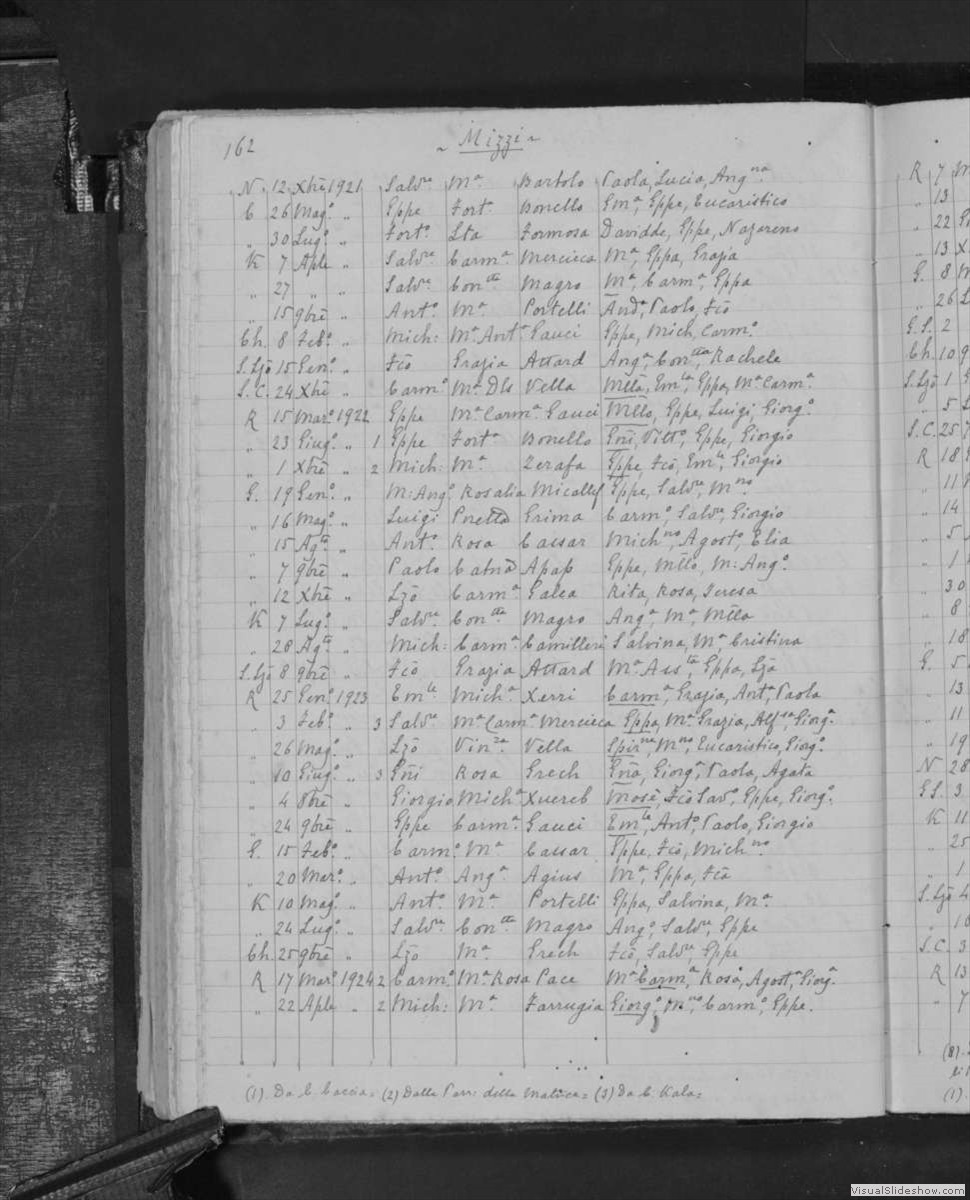 162
~ Mizzi ~
N. 12 Xbrē 1921 Salvre Ma Bartolo Paola, Lucia, Angna
C 26 Mago „ Eppe Fort. Bonello Ema, Eppe, Eucaristico
„ 30 Lugo „ Forto Lta Formosa Davidde, Eppe, Nazareno
K 7 Aple „ Salvre Carma Mercieca Ma, Eppa, Grazia
„ 27 „ „ Salvre Contta Magro Ma, Carma, Eppa
„ 15 9brē „ Anto Ma Portelli Anda, Paolo, Fcō
Ch. 8 Febo „ Mich: Ma Anta Gauci Eppe, Mich, Carmo
S.Ljō 15 Geno „ Fcō Grazia Attard Anga, Contta, Rachele
S.C. 24 Xbrē „ Carmo Ma Dls Vella Mlla, Emla, Eppa, Ma Carma
R 15 Maro 1922 Eppe Ma Carma Gauci Mllo, Eppe, Luigi, Giorgo
„ 23 Giugo „ 1 Eppe Forta Bonello Gni, Vitto, Eppe, Giorgio
„ 1 Xbrē „ 2 Mich: Ma Zerafa Eppe, Fcō, Emle, Giorgio
G. 19 Geno „ M: Ango Rosalia Micallef Eppe, Salvre, Mno
„ 16 Mago „ Luigi Grima Carmo, Salvre, Giorgio
„ 15 Agto „ Anto Rosa Cassar Michno, Agosto, Elia
„ 7 9brē „ Paolo Catnā Apap Eppe, Mllo, M: Ango
„ 12 Xbrē „ Ljō Carma Galea Rita, Rosa, Teresa
K 7 Lugo „ Salvre Contta Magro Anga, Ma, Mlla
„ 28 Agto „ Mich: Carma Camilleri Salvina, Ma, Cristina
S.Ljō 8 9brē „ Fcō Grazia Attard Ma Assta, Eppa, Ljā
R 25 Geno 1923 Emle Micha Xerri Carma, Grazia, Anta, Paola
„ 3 Febo „ 3 Salvre Ma Carma Mercieca Eppa, Ma Grazia, Alfsa, Giorga
„ 26 Mago „ Ljō Vinza Vella Spirne, Mno, Eucaristico, Giorgo
„ 10 Giugo „ 3 Gni Rosa Grech Gna, Giorga, Paola, Agata
„ 4 8brē „ Giorgio Micha Xuereb Mosè, Fcō Savo, Eppe, Giorgo
„ 24 9brē „ Eppe Carma Gauci Emle, Anto, Paolo, Giorgio
G. 15 Febo „ Carmo Ma Cassar Eppe, Fcō, Michno
„ 20 Maro „ Anto Anga Agius Ma, Eppa, Fcā
K 10 Mago „ Anto Ma Portelli Eppa, Salvina, Ma
„ 24 Lugo „ Salvre Contta Magro Ango, Salvre, Eppe
Ch. 25 9brē „ Ljō Ma Grech Fcō, Salvre, Eppe
R 17 Maro 1924 2 Carmo Ma Rosa Pace Ma Carma, Rosa, Agosta, Giorga
„ 22 Aple „ 2 Mich: Ma Farrugia Giorgo, Mno, Carmo, Eppe.
(1). Da C. Caccia= (2) Dalla Parr: della Matrice= (3) Da C. Kala=
R 7
„ 13
„ 22
„ 13
G. 8
„ 26
G.S. 2
Ch. 10
S.Ljō 1
„ 5
S.C. 25
R 18
„ 11
„ 14
„ 5
„ 1
„ 30
„ 8
„ 18
G. 5
„ 13
„ 11
„ 19
N 28
G.S. 3
K 11
„ 25
„ 1
S.Ljō 4
„ 10
S.C. 3
R 13
„ 7
(8).
(1).
VisualSlideshow.com